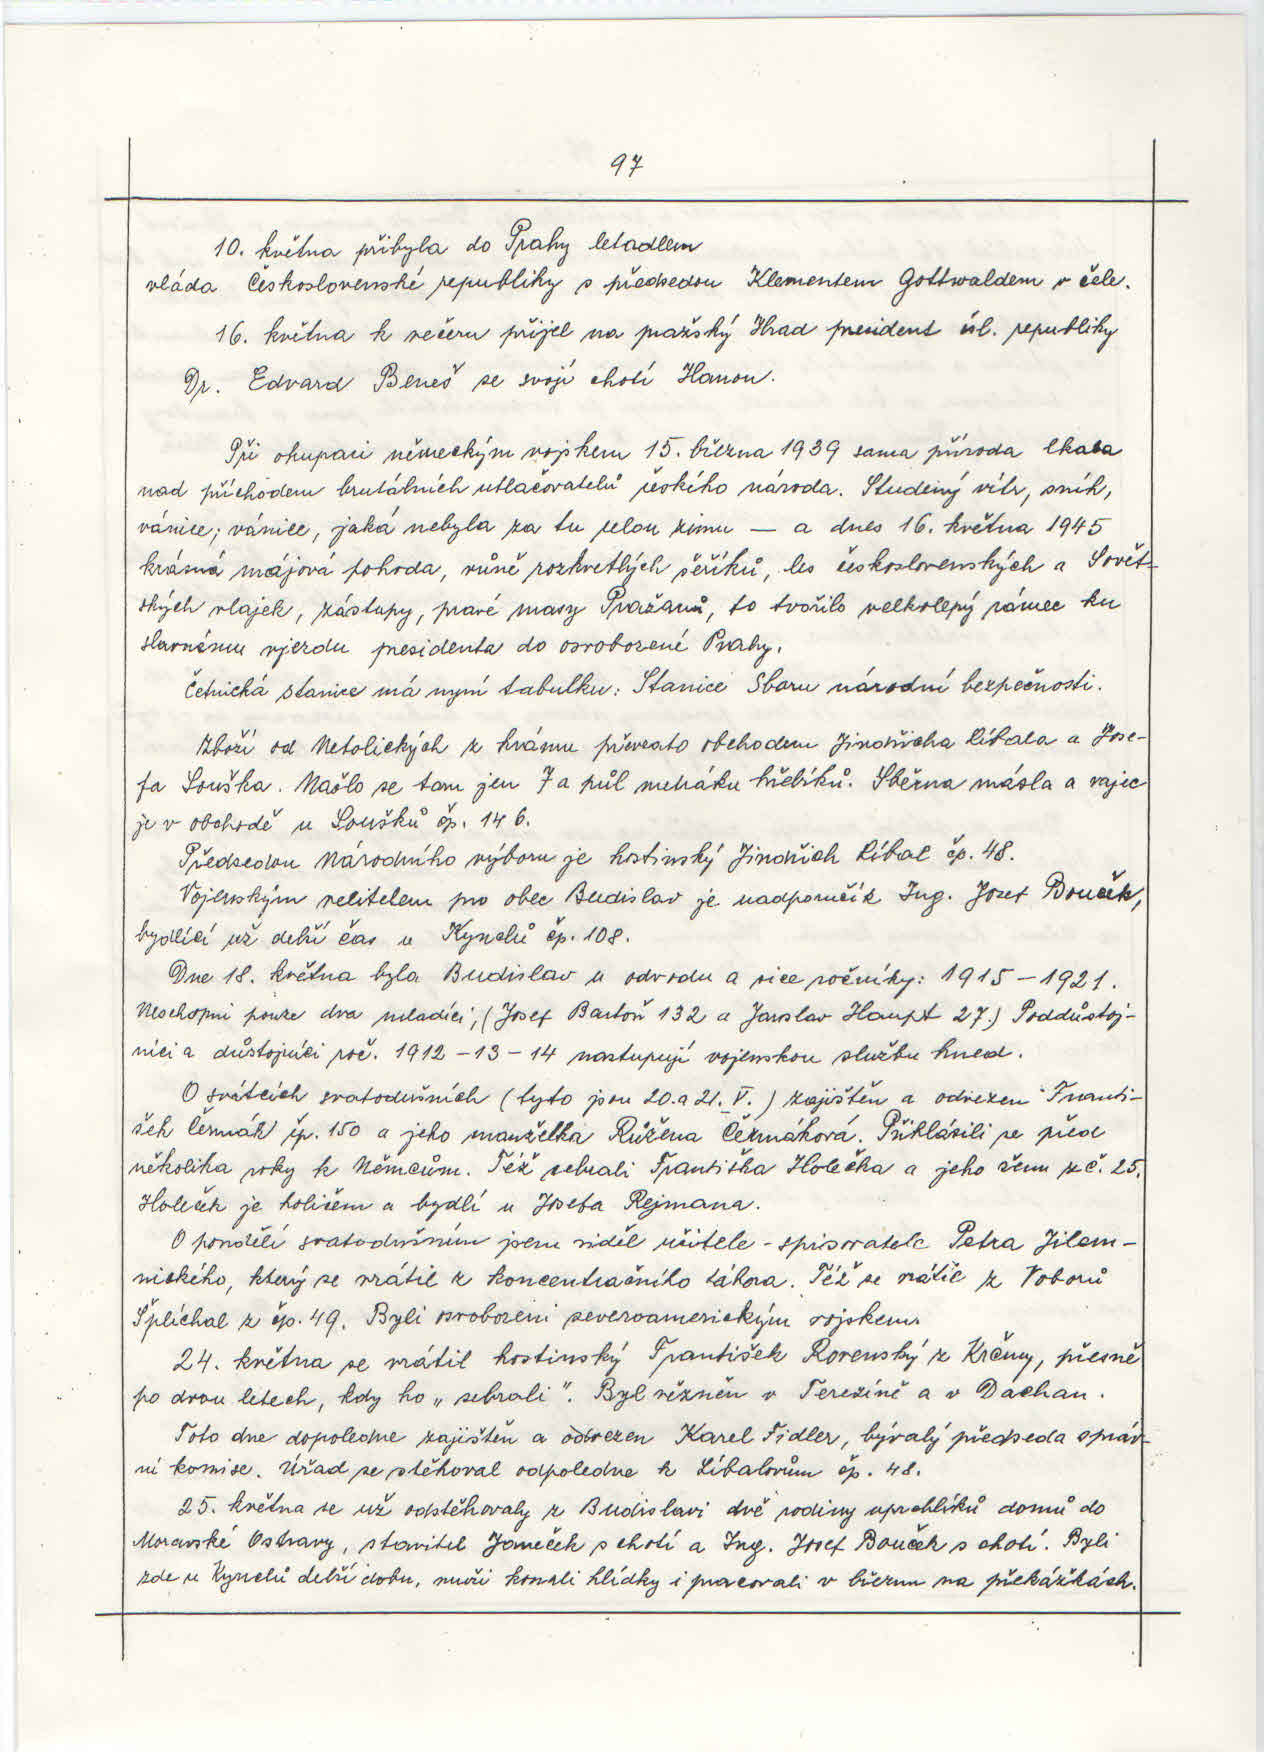 97
10. května přibyla do Prahy letadlem
vláda Československé republiky s předsedou Klementem Gottwaldem v čele.
16. května k večeru přijel na pražský Hrad president čsl. republiky
Dr. Edvard Beneš se svojí chotí Hanou.
Při okupaci německým vojskem 15. března 1939 sama příroda lkala
nad příchodem brutálních utlačovatelů českého národa. Studený vítr, sníh,
vánice; vánice, jaká nebyla za tu celou zimu — a dnes 16. května 1945
krásná májová pohoda, vůně rozkvetlých šeříků, les československých a Sovět-
ských vlajek, zástupy, pravé masy Pražanů, to tvořilo velkolepý rámec ku
slavnému vjezdu presidenta do osvobozené Prahy.
Četnická stanice má nyní tabulku: Stanice Sboru národní bezpečnosti.
Zboží od Netolických z krámu převzato obchodem Jindřicha Líbala a Jose-
fa Souška. Našlo se tam jen 7 a půl metráku hřebíků. Sběrna másla a vajec
je v obchodě u Soušků čp. 146.
Předsedou Národního výboru je hostinský Jindřich Líbal čp. 48.
Vojenským velitelem pro obec Budislav je nadporučík Ing. Josef Bouček,
bydlící už delší čas u Kynclů čp. 108.
Dne 18. května byla Budislav u odvodu a sice ročníky: 1915 – 1921.
Neschopni pouze dva mladíci, (Josef Bartoň 132 a Jaroslav Haupt 27.) Poddůstoj-
níci a důstojníci roč. 1912 – 13 – 14 nastupují vojenskou službu hned.
O svátcích svatodušních (tyto jsou 20. a 21. V.) zajištěn a odvezen Franti-
šek Čermák čp. 150 a jeho manželka Růžena Čermáková. Přihlásili se před
několika roky k Němcům. Též sebrali Františka Holečka a jeho ženu z č. 25.
Holeček je holičem a bydlí u Josefa Rejmana.
O pondělí svatodušním jsem viděl učitele - spisovatele Petra Jilem-
nického, který se vrátil z koncentračního tábora. Též se vrátil z Voborů
Šplíchal z čp. 49. Byli osvobozeni severoamerickým vojskem.
24. května se vrátil hostinský František Rovenský z Krčmy, přesně
po dvou letech, kdy ho „sebrali". Byl vězněn v Terezíně a v Dachau.
Toto dne dopoledne zajištěn a odvezen Karel Fidler, bývalý předseda správ-
ní komise. Úřad se stěhoval odpoledne k Líbalovům čp. 48.
25. května se už odstěhovaly z Budislavi dvě rodiny uprchlíků domů do
Moravské Ostravy, stavitel Janeček s chotí a Ing. Josef Bouček s chotí. Byli
zde u Kynclů delší dobu, muži konali hlídky i pracovali v březnu na překážkách.